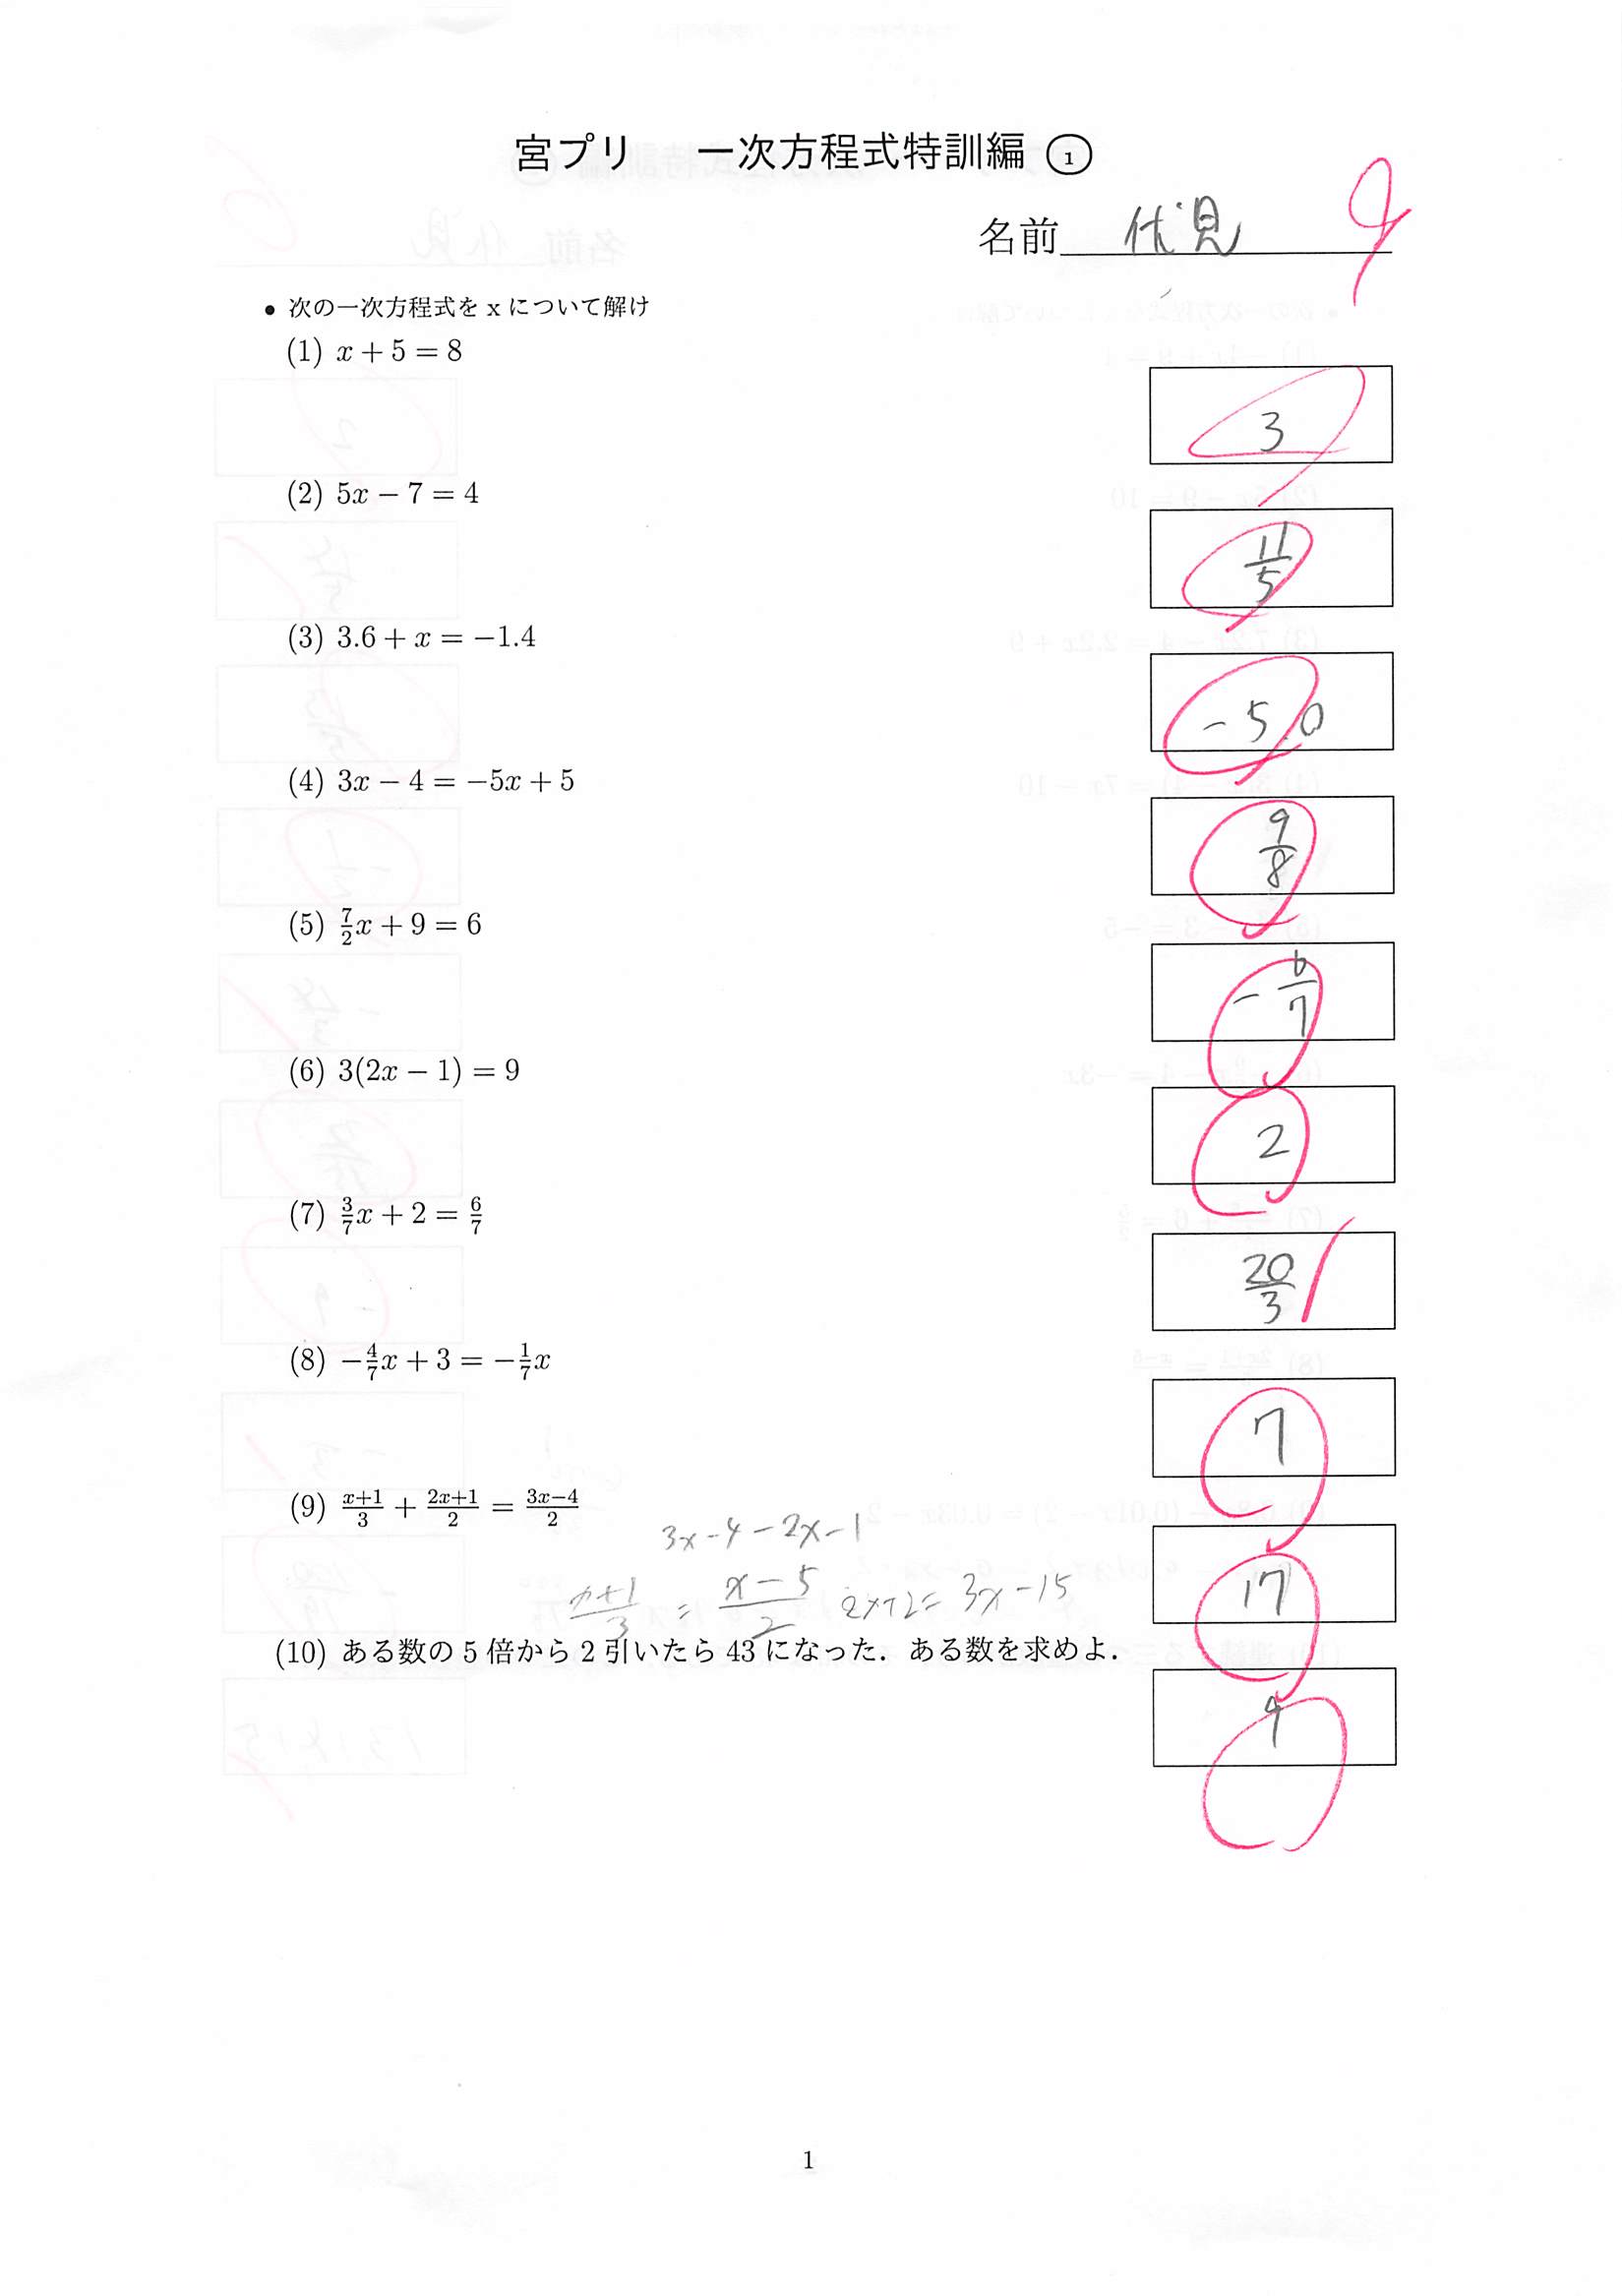 宮プリ 一次方程式特訓編 ①
名前 伏見 9
• 次の一次方程式を x について解け
(1) x + 5 = 8
3
(2) 5x − 7 = 4
11/5
(3) 3.6 + x = −1.4
−5.0
(4) 3x − 4 = −5x + 5
9/8
(5) 7/2 x + 9 = 6
−6/7
(6) 3(2x − 1) = 9
2
(7) 3/7 x + 2 = 6/7
20/3
(8) −4/7 x + 3 = −1/7 x
7
(9) (x+1)/3 + (2x+1)/2 = (3x−4)/2
3x−4−2x−1
(x+1)/3 = (x−5)/2 2x+2= 3x−15
17
(10) ある数の 5 倍から 2 引いたら 43 になった．ある数を求めよ．
9
1